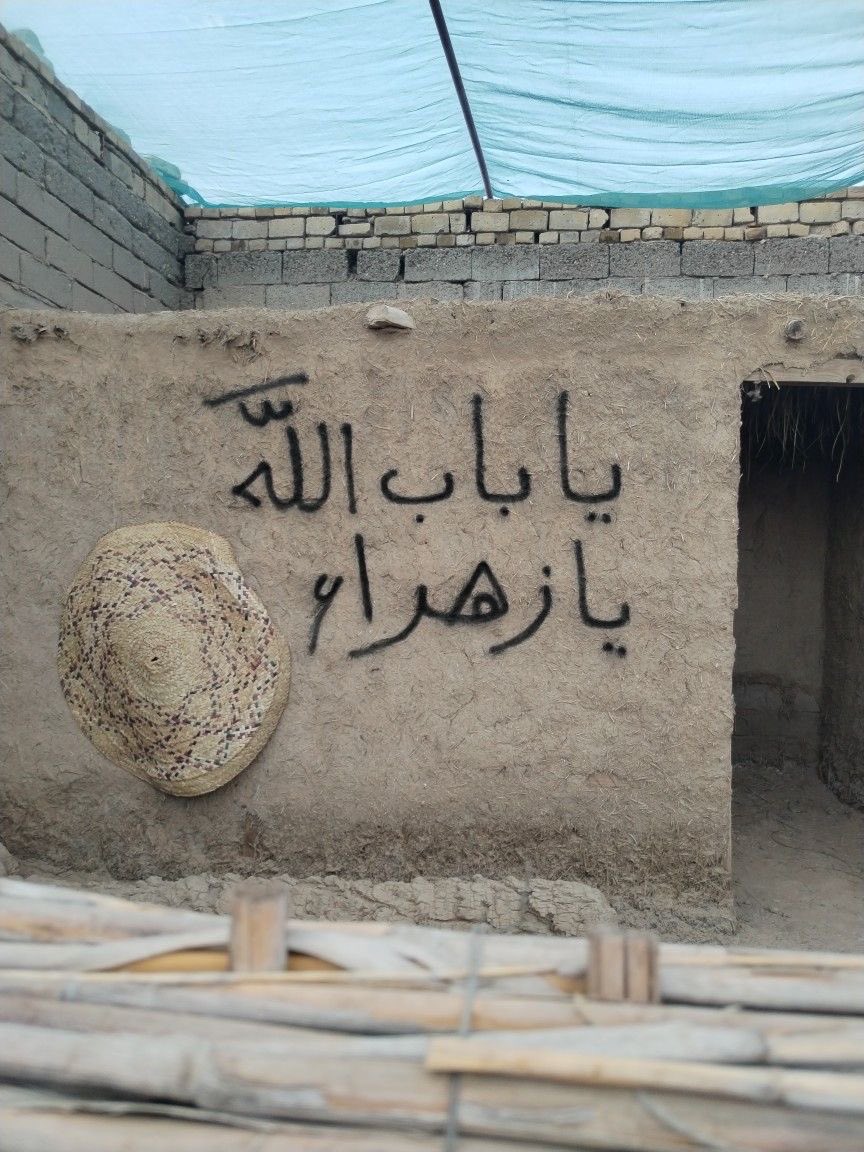 يا باب اللّٰه
يا زهراء